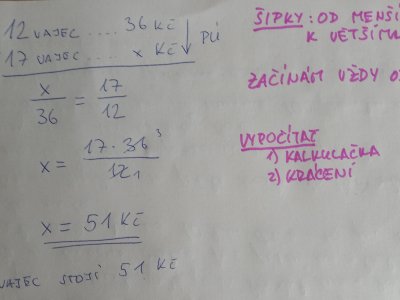 12 VAJEC .... 36 KČ
17 VAJEC .... x KČ
PÚ
x/36 = 17/12
x = 17 · 36 3 / 12 1
x = 51 KČ
VAJEC STOJÍ 51 KČ
ŠIPKY: OD MENŠÍ
K VĚTŠÍMU
ZAČÍNÁM VŽDY O
VYPOČÍTAT
1) KALKULAČKA
2) KRÁCENÍ